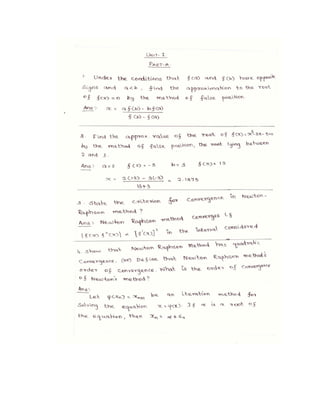 Unit-I
Part-A
1. Under the conditions that f(a) and f(b) have opposite
signs and a<b, find the approximation to the root
of f(x)=0 by the method of false position
Ans: x = af(b) - bf(a)
f(b) - f(a)
2. Find the approx. value of the root of
by the method of false position, the root lying between
2 and 3.
Ans: a=2 b=3
x = = 2.1875
15+3
3. State the criterion for convergence in Newton-
Raphson method?
Ans: Newton Raphson method converges if
|f(x) f''(x)| < |f'(x)|² in the interval considered
4. Show that Newton Raphson Method has quadratic
Convergence. (or) Define that Newton Raphson method's
order of Convergence. What is the order of Convergence
of Newton's method?
Ans:
Let be an iteration method for
Solving the equation x = φ(x) If α is a root of
the equation, then